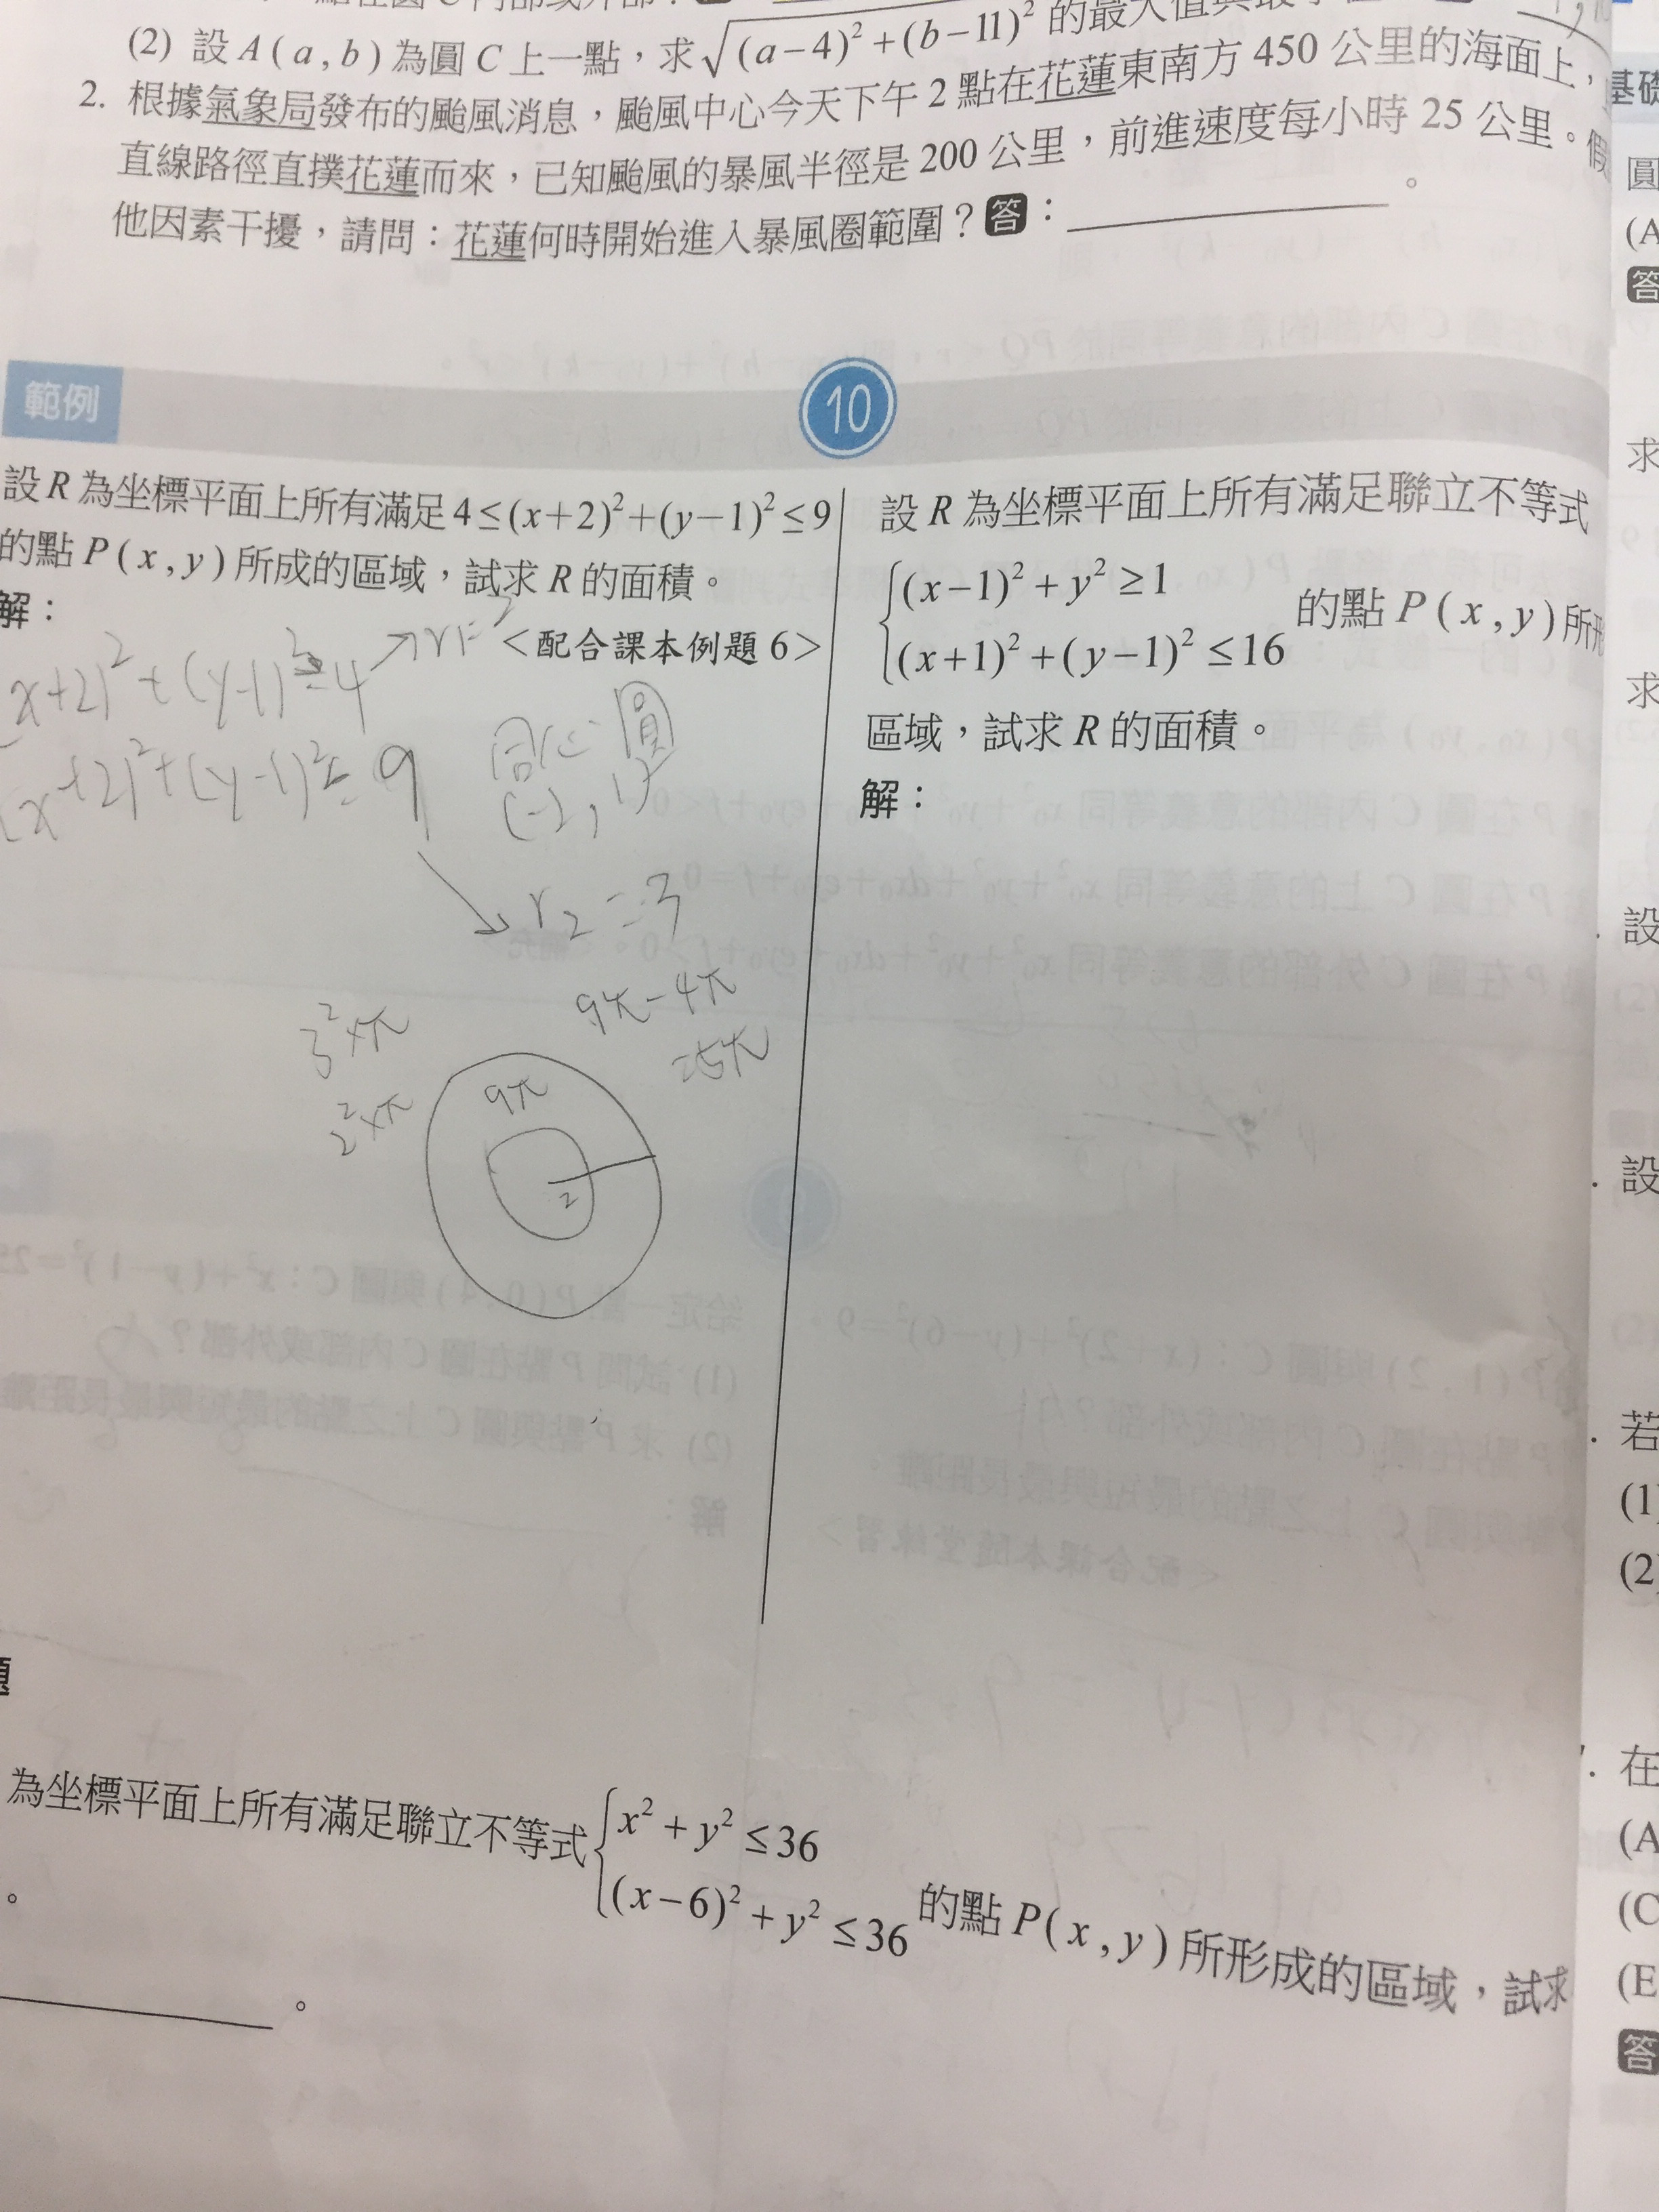 (2) 設 A(a,b) 為圓 C 上一點，求√(a−4)²+(b−11)² 的最大值與最
2. 根據氣象局發布的颱風消息，颱風中心今天下午 2 點在花蓮東南方 450 公里的海面上，
直線路徑直撲花蓮而來，已知颱風的暴風半徑是 200 公里，前進速度每小時 25 公里。假
他因素干擾，請問：花蓮何時開始進入暴風圈範圍？答：
。
範例
10
設 R 為坐標平面上所有滿足 4≤(x+2)²+(y−1)²≤9
的點 P(x,y) 所成的區域，試求 R 的面積。
解：
<配合課本例題 6>
x+2)²+(y-1)²≥4
(x+2)²+(y-1)²≤9
同心圓
(-2,1)
r2=3
3²×π
2²×π
9π-4π
=5π
9π
2
設 R 為坐標平面上所有滿足聯立不等式
(x−1)²+y²≥1
(x+1)²+(y−1)²≤16
的點 P(x,y) 所形
區域，試求 R 的面積。
解：
題
為坐標平面上所有滿足聯立不等式
x²+y²≤36
(x−6)²+y²≤36
的點 P(x,y) 所形成的區域，試求
。
。
基礎
圓
(A
答
求
求
設
設
若
(1)
(2)
在
(A
(C
(E
答